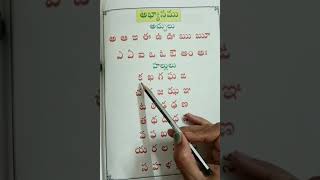 అభ్యాసము
అచ్చులు
అ ఆ ఇ ఈ ఉ ఊ ఋ ౠ
ఎ ఏ ఐ ఒ ఓ ఔ అం అః
హల్లులు
క ఖ గ ఘ ఙ
జ ఝ ఞ
ట ఢ ణ
త థ న
ప ఫ
య ర ల
స హ ళ